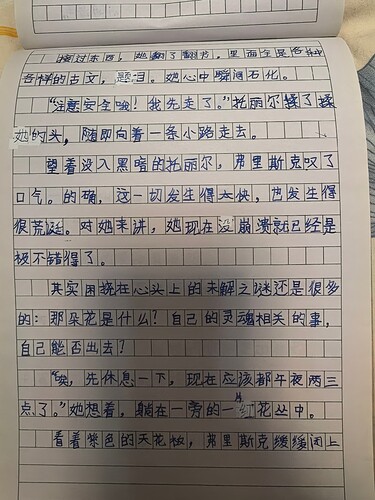 接过东西，她翻了翻书，里面全是各种
各样的古文，题目。她心中瞬间石化。
“注意安全哦！我先走了。”托丽尔揉了揉
她的头，随即向着一条小路走去。
望着没入黑暗的托丽尔，弗里斯克叹了
口气。的确，这一切发生得太快，也发生得
很荒诞。对她来讲，她现在没崩溃就已经是
极不错得了。
其实困挠在心头上的未解之谜还是很多
的：那朵花是什么？自己的灵魂相关的事，
自己能否出去？
“唉，先休息一下，现在应该都午夜两三
点了。”她想着，躺在一旁的一红花丛中。
看着紫色的天花板，弗里斯克缓缓闭上